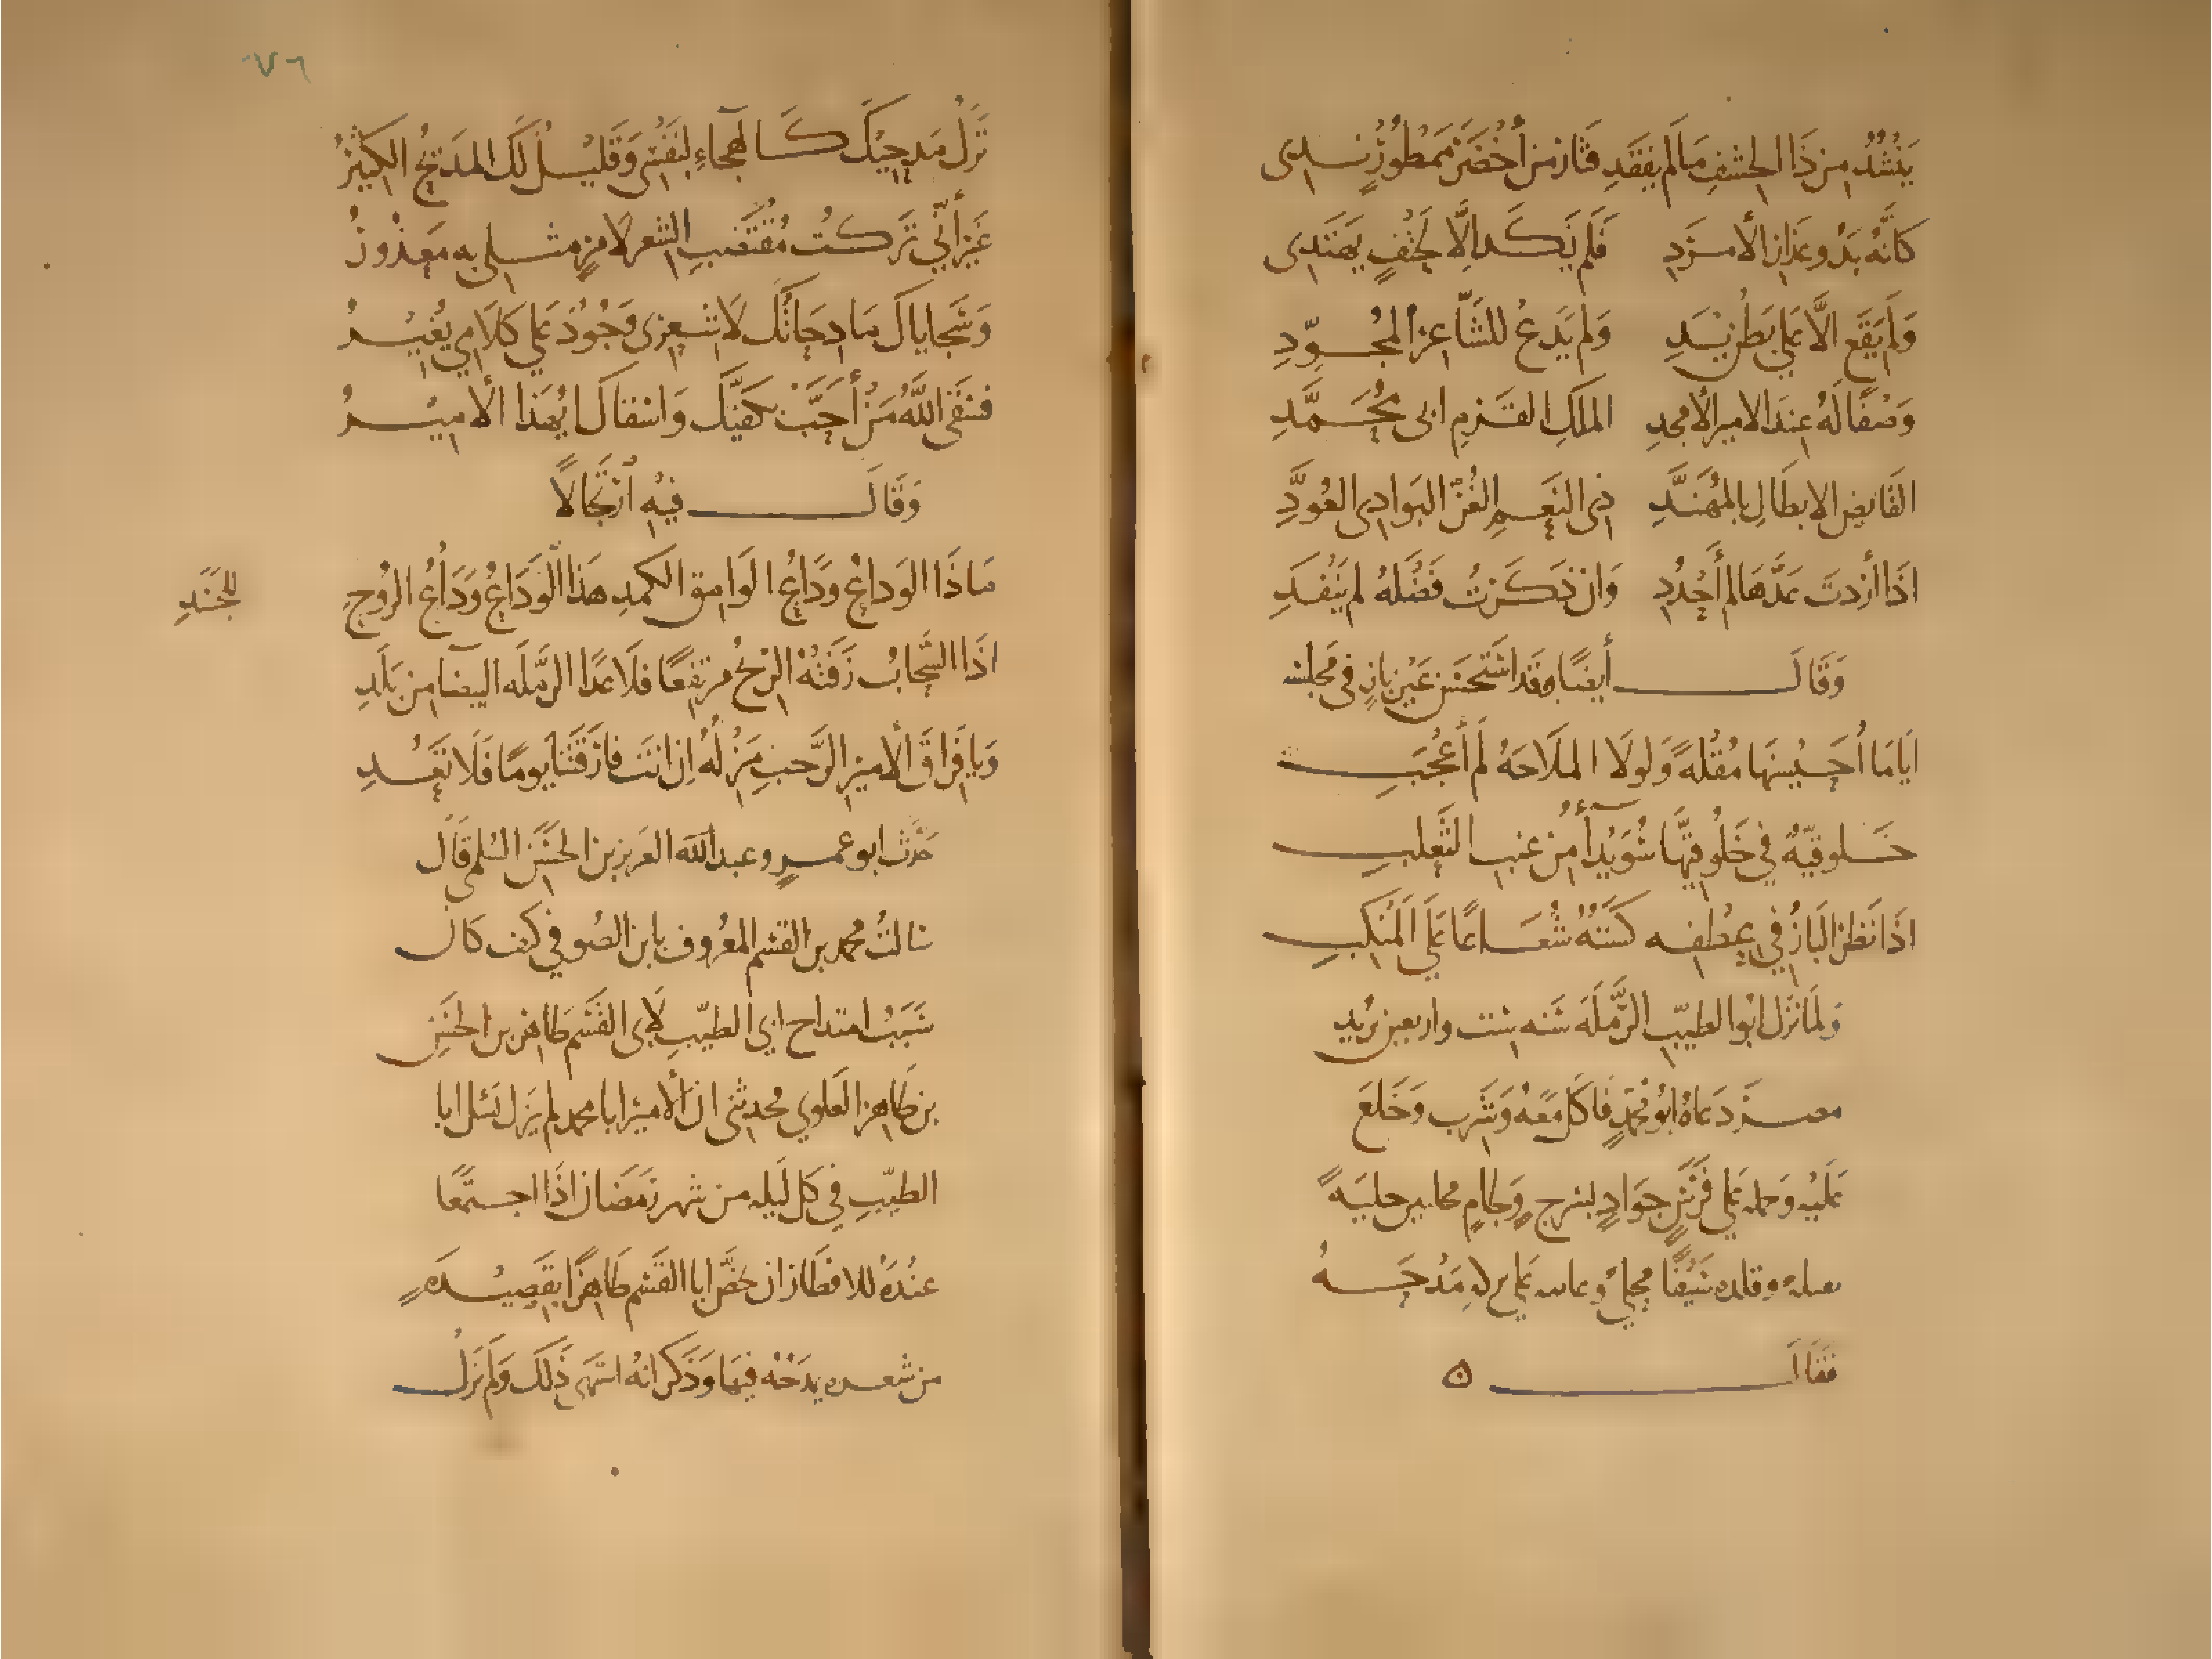 يَنْشُدُ مِن ذَا الخِشْفِ مَا لَم يَفقِدِ فَثَارَ مِن أَخْضَرَ مَمْطُورٍ نَدِى
كَأَنَّهُ بَدْو عِذَارِ الأَمْرَدِ فَلَم يَكَد إِلَّا لِحَتْفٍ يَهتَدِى
وَلَم يَقَع الَّا عَلى بَطْنِ يَدِ وَلم يَدَعْ للشَّاعِر المُجَوِّدِ
وَصْفًا لَهُ عِندَ الامير الأمجدِ المَلِكِ القَرْمِ ابى مُحَمَّدِ
القَانِصِ الابطَالِ بِالمُهَنَّدِ ذِى النِعَمِ الغُرِّ البَوادِى العُوَّدِ
اذَا أَرَدتَ عَدَّهَا لَم أَجْدُدِ وَان ذَكَرْتُ فَضْلَهُ لم يَنْفَدِ
وَقَالَ أَيضًا وقَد استَحسَنَ عَيْنَ بَازٍ فى مَجلسه
ايَا مَا أُحَيْسِنَهَا مُقْلَةً وَلَولَا المَلَاحَةُ لَم أَعْجَبِ
خَلوقيّةٌ في خَلُوقِيِّهَا سُوَيْدَآءُ مِن عِنبِ الثَّعلبِ
اذَا نَظَرَ البَازُ فِي عِطْفِه كَسَتْهُ شُعَاعًا عَلَى المَنْكِبِ
وَلمَا نَزَل ابُوا الطيبّ الرَّملَه سَنَه ست واربعين يُريد
مصر دَعَاهُ ابُو مُحمَّدٍ فَاكَلَ مَعَهُ وَشَرب وَخَلعَ
عَلَيْهِ وَحمله عَلى فَرَسٍ جَوَادٍ بسَرجٍ وَلجَامٍ محلييَن حليَةً
ثقيلة وقلده سَيْفًا مُحلىً وعاتبه عَلى تركهِ مَدْحَهُ
فَقَالَ ه
٧٦
تَركُ مَدحِيْكَ كَالهِجَاءِ لِنَفْسِى وَقَليْلٌ لَكَ المَدِيْحُ الكَثيْرُ
غَيرَ أَنِّي تَرَكتُ مُقْتَضَبَ الشعرِ لأَمرٍ مثلى بِه مَعذُورُ
وَسَجَايَاكَ مَادِحَاتُكَ لَا شِعرِى وَجُودٌ عَلى كَلَامي يُغيْرُ
فسَقَى اللَّهُ مَنْ أُحِبُّ بِكَفَّيْكَ وَاسقَاكَ ايُّهَذا الأَميْرُ
وَقَالَ فيْه اُرتِجَالًا
مَاذَا الوَداعُ وَدَاعُ الوَامِق الكَمِدِ هَذا الوَدَاعُ وَدَاعُ الرُوحِ
للجَسَدِ
اذَا السَّحَابُ زَفَتْهُ الرِيحُ مرتفِعًا فلَا عَدَا الرَّملَه البيضا مِن بَلَدِ
وَيا فِرَاقَ الأَميْرِ الرَّحبِ مَنْزلُهُ اِن انتَ فارَقتَنَا يَومًا فَلَا تَعُدِ
حَدَّث ابو عمرٍ وعبد الله العَزيز بن الحَسَن السُلمي قَال
سَالتُ محمد بن القسم المعرُوف بابن الصُوفي كيف كَان
سَبَبُ امتداح ابي الطيّبِ لأبى القَسم طَاهر بن الحَسَنِ
بن طَاهِر العَلَوي فحدثنى ان الأميرَ ابا محمد لم يَزل يَسئل ابا
الطيّبِ في كل لَيله من شهر رَمَضَان اذَا اجتمعَا
عنْدَهُ للافطَار ان يَخصَّ ابا القَسم طَاهِرًا بقَصِيْدَهٍ
من شعره يمدَحُهُ فيهَا وَذَكر انهُ اشتهى ذَلكَ وَلَم يَزلْ